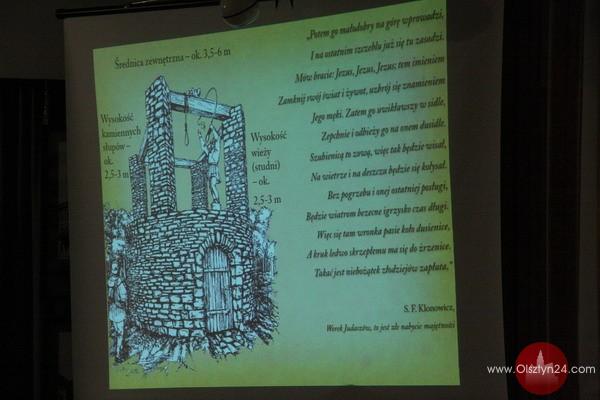 Średnica zewnętrzna – ok. 3,5-6 m
Wysokość
kamiennych
słupów –
ok.
2,5-3 m
Wysokość
wieży
(studni)
– ok.
2,5-3 m
„Potem go małudobry na górę wprowadzi,
I na ostatnim szczeblu już się tu zasadzi.
Mów bracie: Jezus, Jezus, Jezus; tem imieniem
Zamknij swój świat i żywot, uzbrój się znamieniem
Jego męki. Zatem go uwikławszy w sidle,
Zepchnie i odbieży go na onem dusidle.
Szubienicą to zową, więc tak będzie wisał,
Na wietrze i na deszczu będzie się kołysał.
Bez pogrzebu i onej ostatniej posługi,
Będzie wiatrom bezecne igrzysko czas długi.
Więc się tam wronka pasie koło dusienice,
A kruk ledwo skrzepłemu ma się do źrzenice.
Takać jest niebożątek złodziejów zapłata,"
S. F. Klonowicz,
Worek Judaszów, to jest złe nabycie majętności
www.Olsztyn24.com